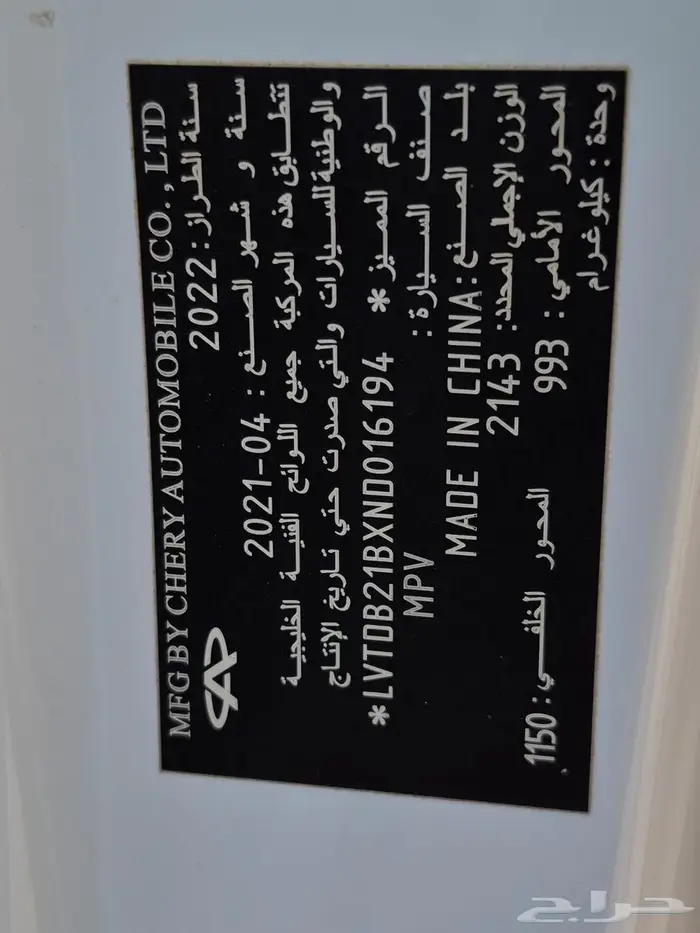 MFG BY CHERY AUTOMOBILE CO., LTD
سنة الطراز: 2022
سنة و شهر الصنع: 2021-04
تتطابق هذه المركبة جميع اللوائح الفنية الخليجية
والوطنية للسيارات والتي صدرت حتي تاريخ الإنتاج
الرقم المميز: *LVTDB21BXND016194*
صنف السيارة: MPV
بلد الصنع: MADE IN CHINA
الوزن الإجملي المحدد: 2143
المحور الأمامي: 993 المحور الخلفي: 1150
وحدة: كيلوغرام
حراج